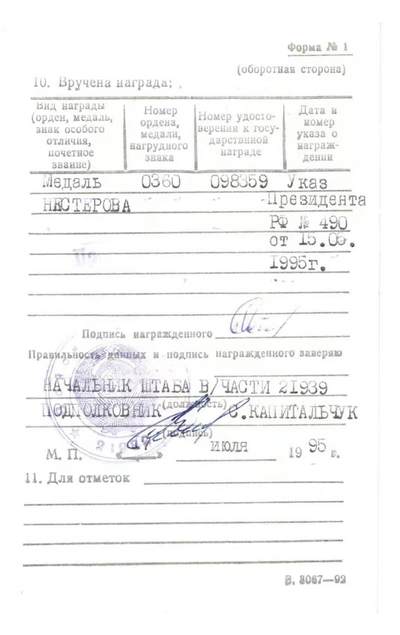 Форма № 1
(оборотная сторона)
10. Вручена награда:
Вид награды (орден, медаль, знак особого отличия, почетное звание)
Номер ордена, медали, нагрудного знака
Номер удостоверения к государственной награде
Дата и номер указа о награждении
Медаль 0360 098359 Указ
НЕСТЕРОВА Президента
РФ № 490
от 15.05.
1995г.
Подпись награжденного
Правильность данных и подпись награжденного заверяю
НАЧАЛЬНИК ШТАБА В/ЧАСТИ 21939
(должность)
ПОДПОЛКОВНИК С.КАПИТАЛЬЧУК
(подпись)
М. П. июля 1995 г.
11. Для отметок
В. 8067—92